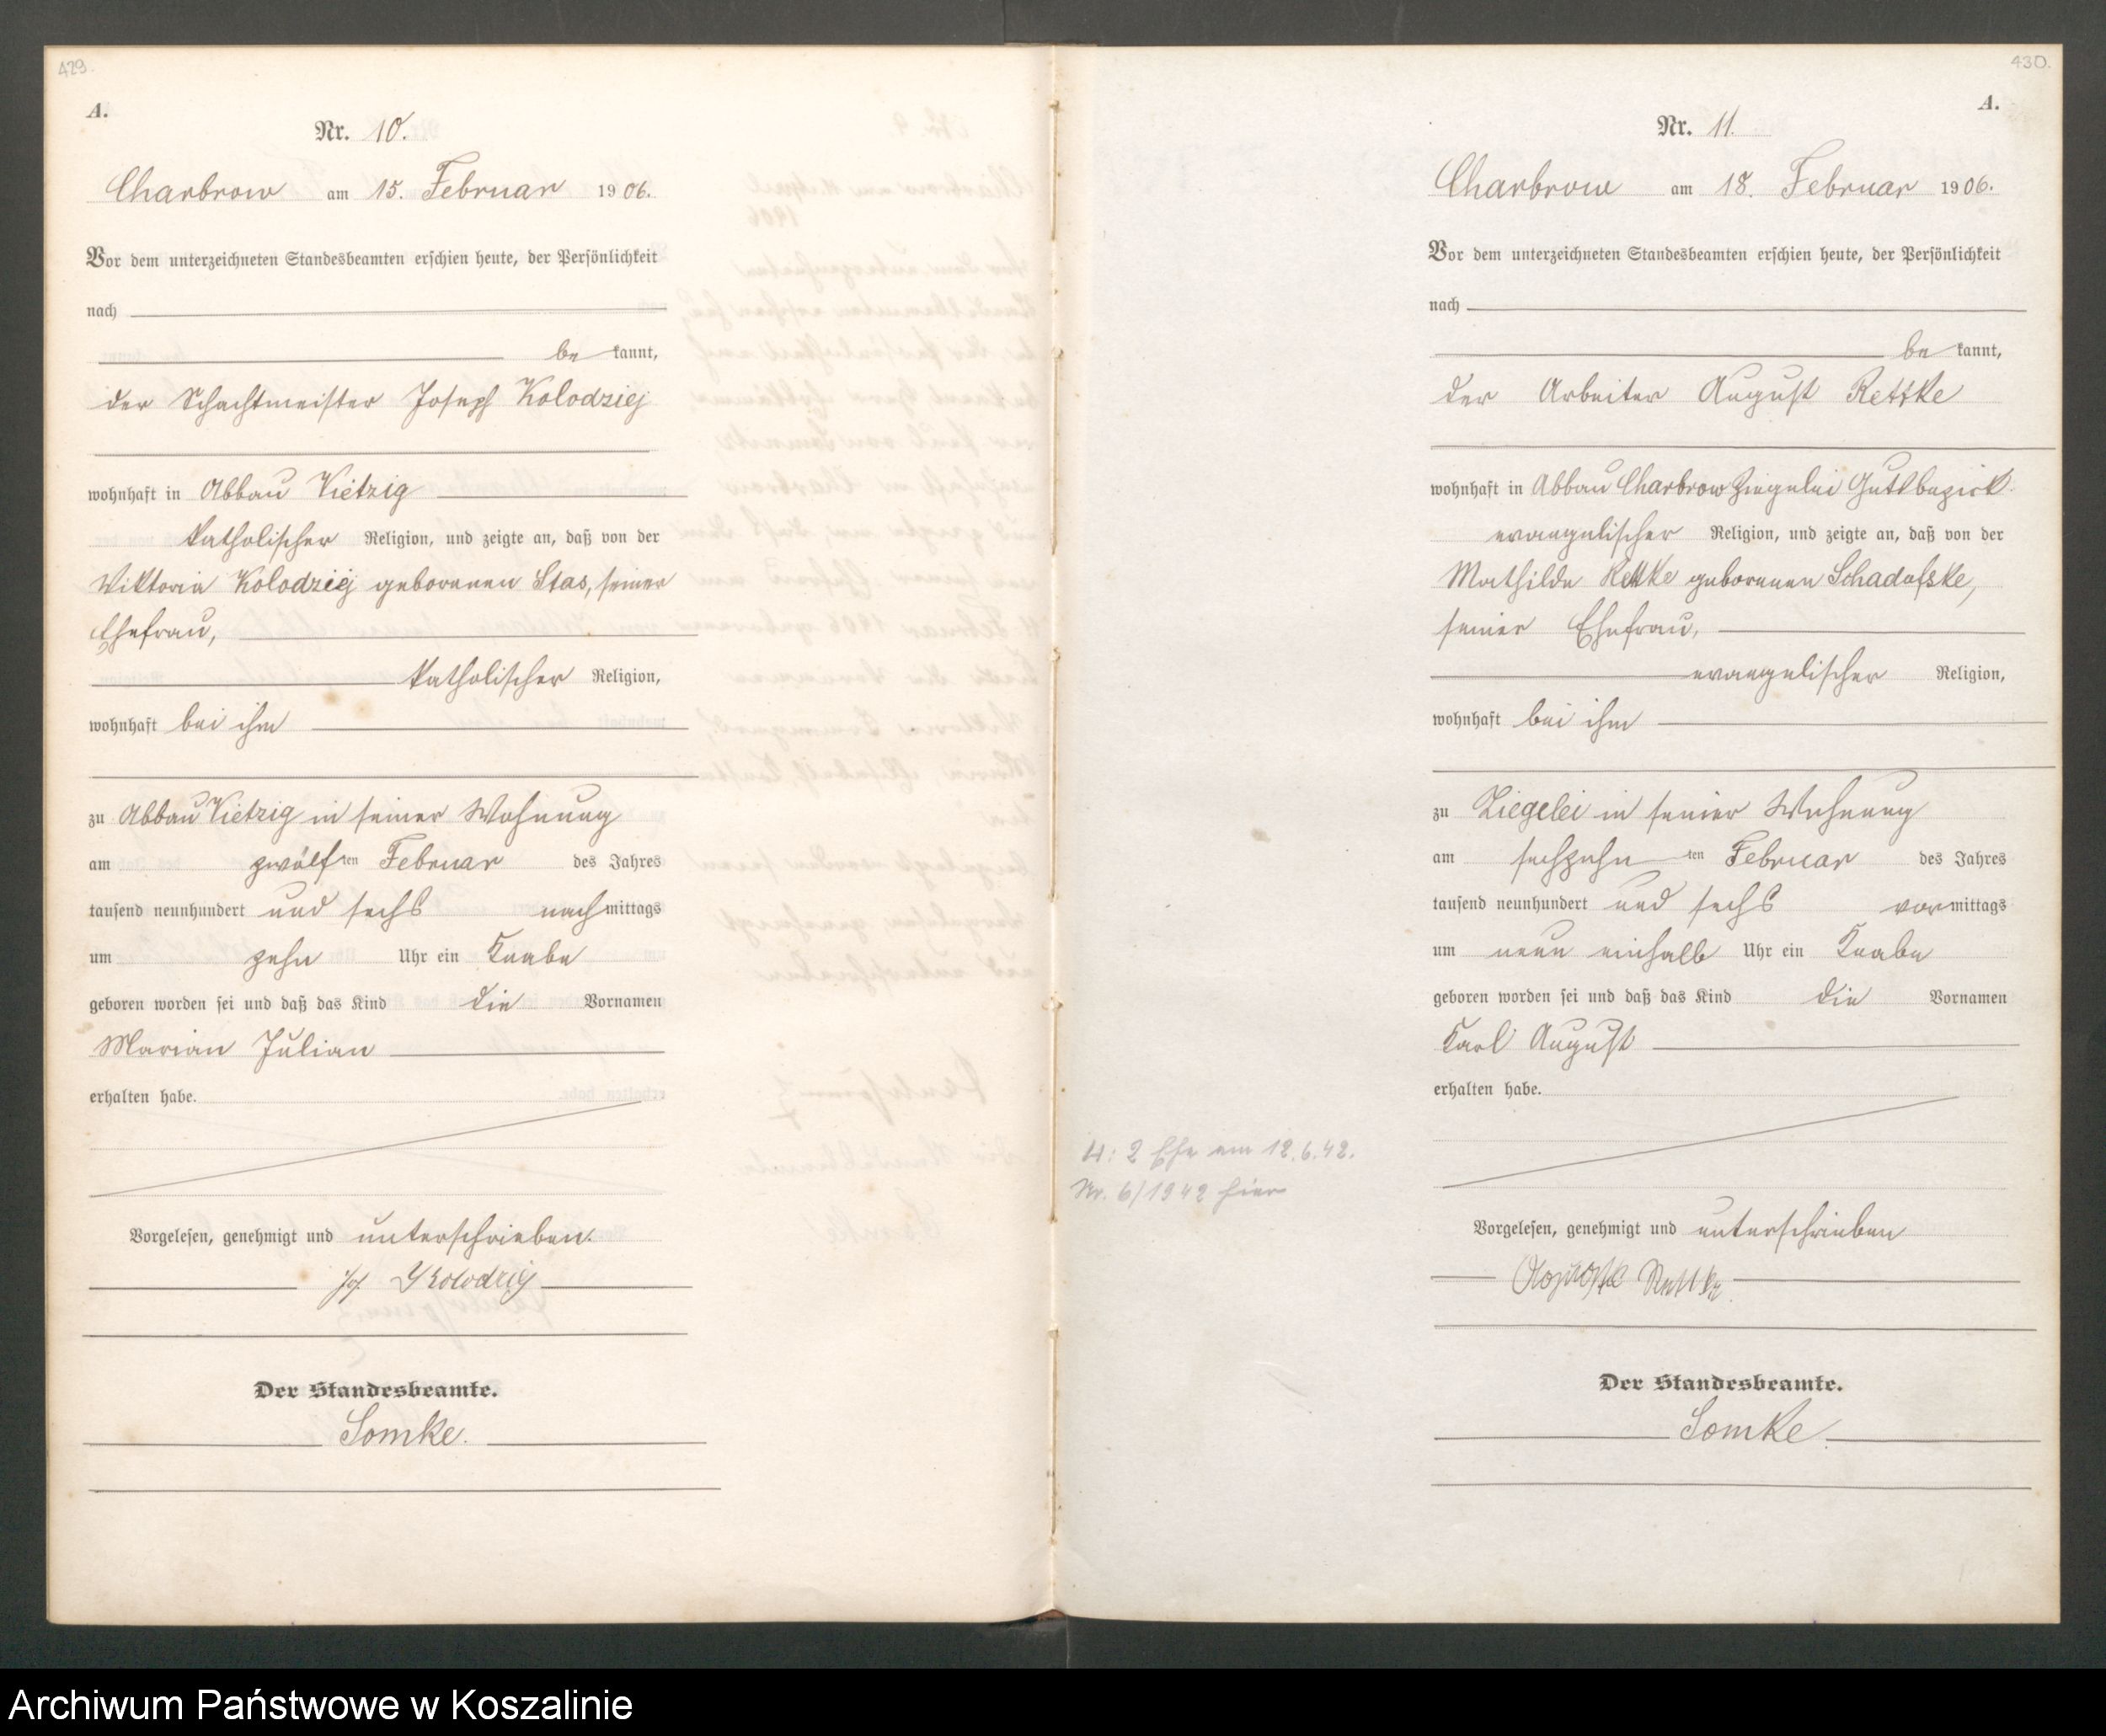 429.
A.
Nr. 10.
Charbrow am 15. Februar 1906.
Vor dem unterzeichneten Standesbeamten erschien heute, der Persönlichkeit
nach
be kannt,
der Schachtmeister Joseph Kolodziej
wohnhaft in Abbau Vietzig
katholischer Religion, und zeigte an, daß von der
Viktoria Kolodziej geborenen Stas, seiner
Ehefrau,
katholischer Religion,
wohnhaft bei ihm
zu Abbau Vietzig in seiner Wohnung
am zwölften Februar des Jahres
tausend neunhundert und sechs nachmittags
um zehn Uhr ein Knabe
geboren worden sei und daß das Kind die Vornamen
Marian Julian
erhalten habe.
Vorgelesen, genehmigt und unterschrieben.
Jos. Kolodziej
Der Standesbeamte.
Somke.
430.
A.
Nr. 11.
Charbrow am 18. Februar 1906.
Vor dem unterzeichneten Standesbeamten erschien heute, der Persönlichkeit
nach
be kannt,
der Arbeiter August Rettke
wohnhaft in Abbau Charbrow Ziegelei Gutsbezirk
evangelischer Religion, und zeigte an, daß von der
Mathilde Rettke geborenen Schadofske,
seiner Ehefrau,
evangelischer Religion,
wohnhaft bei ihm
zu Ziegelei in seiner Wohnung
am sechzehnten Februar des Jahres
tausend neunhundert und sechs vormittags
um neun einhalb Uhr ein Knabe
geboren worden sei und daß das Kind die Vornamen
Karl August
erhalten habe.
H: 2 Ehe am 12.6.42.
Nr. 6/1942 hier
Vorgelesen, genehmigt und unterschrieben
Rettke
Der Standesbeamte.
Somke.
Archiwum Państwowe w Koszalinie